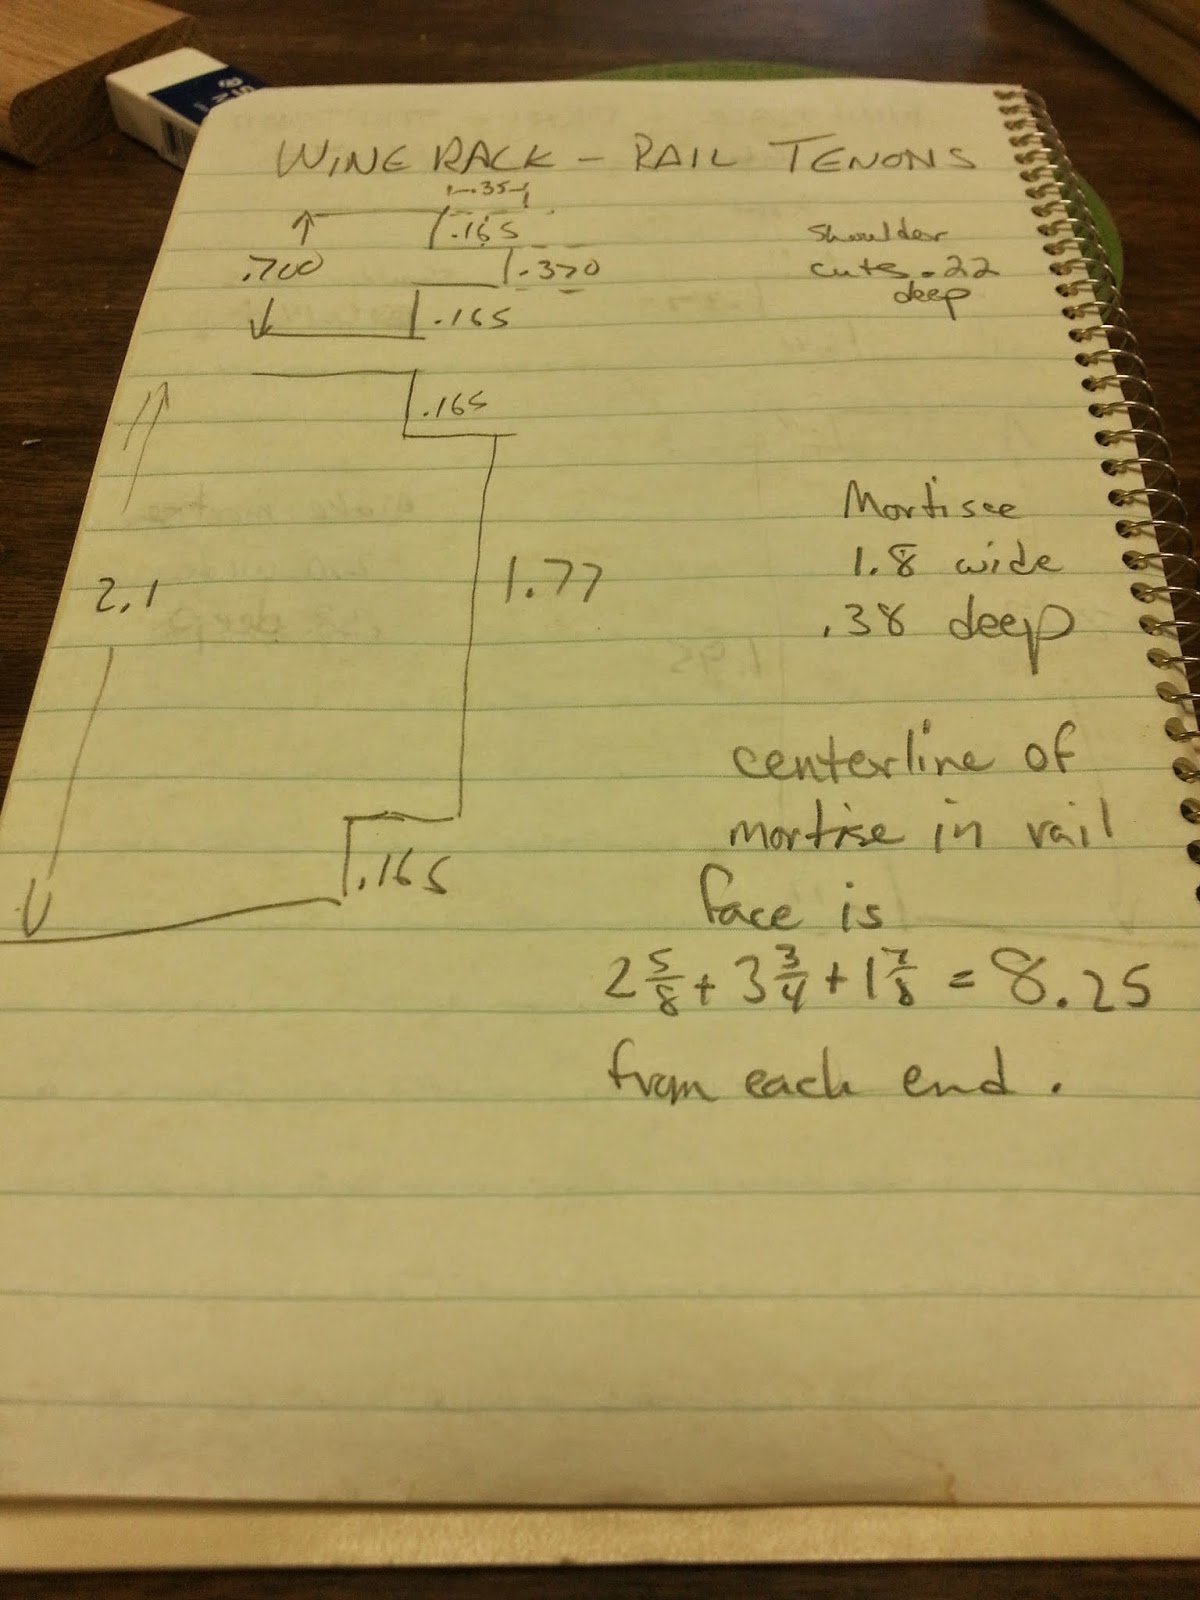 WINE RACK – RAIL TENONS
.35
.165
.700
.370
.165
shoulder
cuts .22
deep
.165
2.1
1.77
.165
Mortisee
1.8 wide
.38 deep
centerline of
mortise in rail
face is
2 5/8 + 3 3/4 + 1 7/8 = 8.25
from each end.